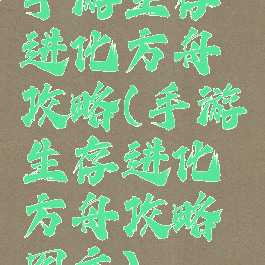 手游生存
进化方舟
攻略(手游
生存进化
方舟攻略